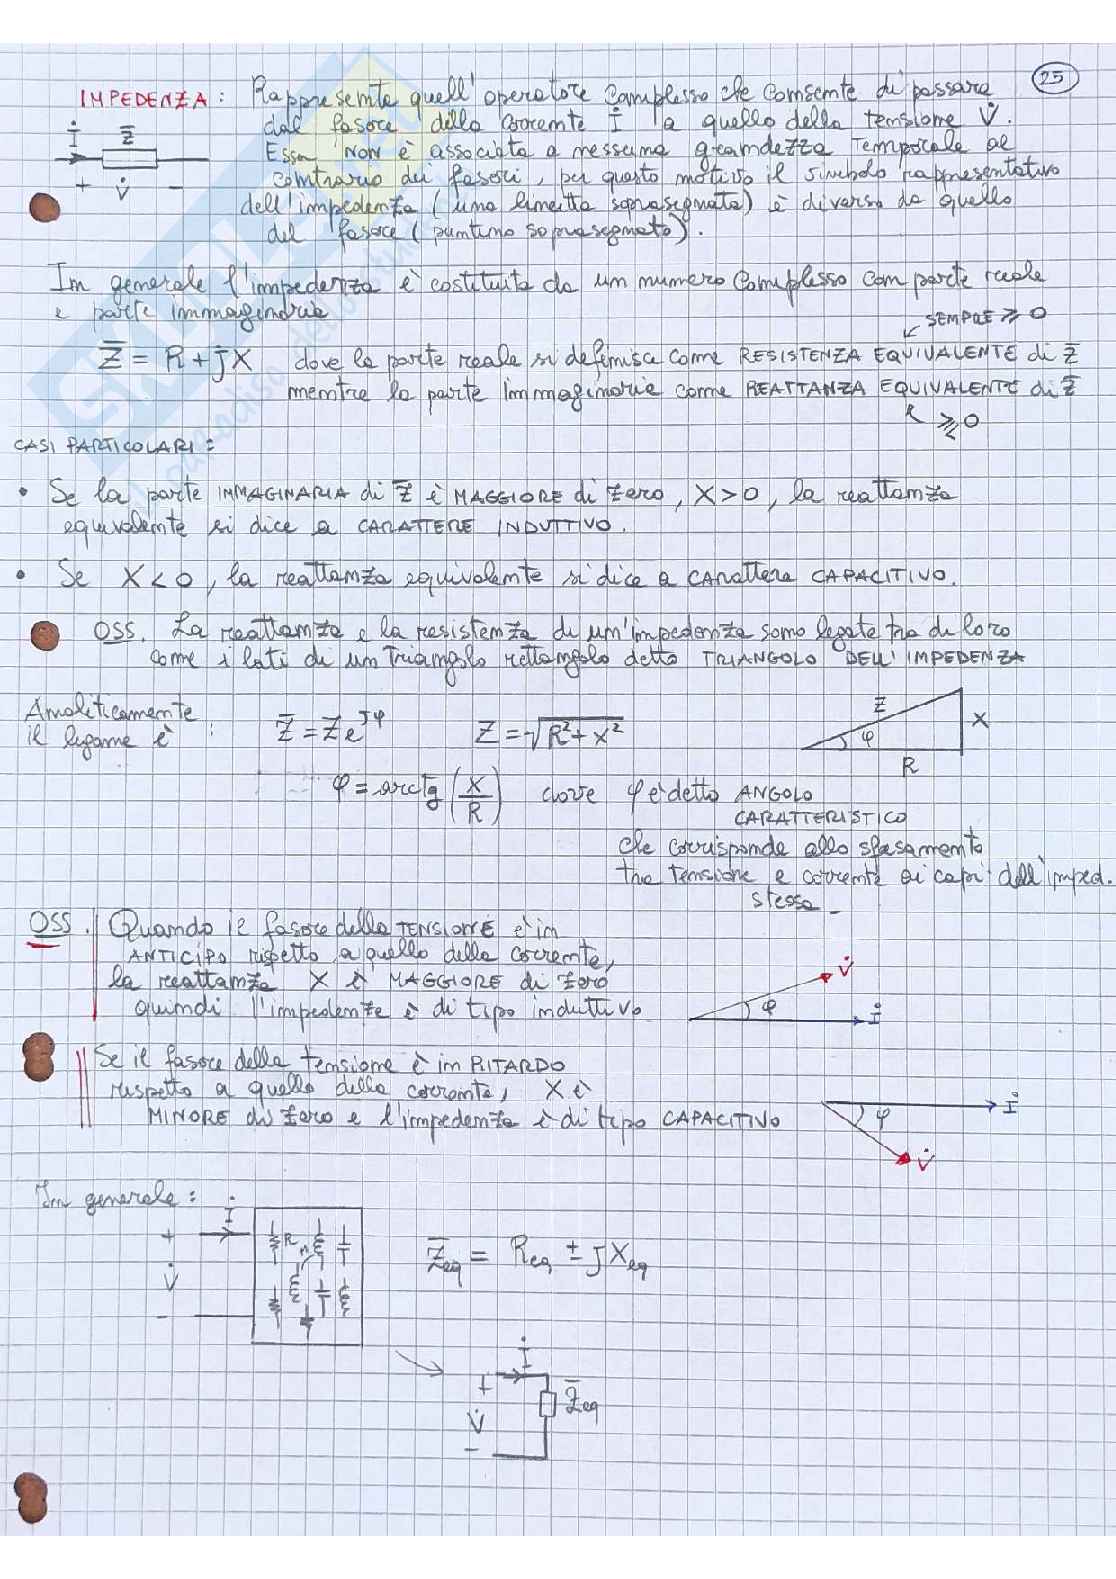 25
IMPEDENZA: Rappresenta quell'operatore complesso che consente di passare
dal fasore della corrente İ a quello della tensione V̇.
Essa NON è associata a nessuna grandezza temporale al
contrario dei fasori, per questo motivo il simbolo rappresentativo
dell'impedenza (una linetta soprasegnata) è diverso da quello
del fasore (puntino soprasegnato).
İ Z̅
+ V̇ −
In generale l'impedenza è costituita da un numero complesso con parte reale
e parte immaginaria
SEMPRE ⩾ 0
Z̅ = R + jX dove la parte reale si definisce come RESISTENZA EQUIVALENTE di Z̅
mentre la parte immaginaria come REATTANZA EQUIVALENTE di Z̅
⪌ 0
CASI PARTICOLARI:
• Se la parte IMMAGINARIA di Z̅ è MAGGIORE di zero, X>0, la reattanza
equivalente si dice a CARATTERE INDUTTIVO.
• Se X<0, la reattanza equivalente si dice a CARATTERE CAPACITIVO.
OSS. La reattanza e la resistenza di un'impedenza sono legate tra di loro
come i lati di un triangolo rettangolo detto TRIANGOLO DELL'IMPEDENZA
Analiticamente
il legame è : Z̅ = Z e^jφ Z = √R²+X²
Z φ X
R
φ = arctg (X/R) dove φ è detto ANGOLO
CARATTERISTICO
che corrisponde allo sfasamento
tra tensione e corrente ai capi dell'imped.
stessa
OSS. Quando il fasore della TENSIONE è in
ANTICIPO rispetto a quello della corrente,
la reattanza X è MAGGIORE di zero
quindi l'impedenza è di tipo induttivo
V̇
φ
İ
Se il fasore della tensione è in RITARDO
rispetto a quello della corrente, X è
MINORE di zero e l'impedenza è di tipo CAPACITIVO
İ
φ
V̇
In generale:
İ
+
V̇
−
R
Z̅eq = Req ± jXeq
İ
+
V̇
−
Z̅eq